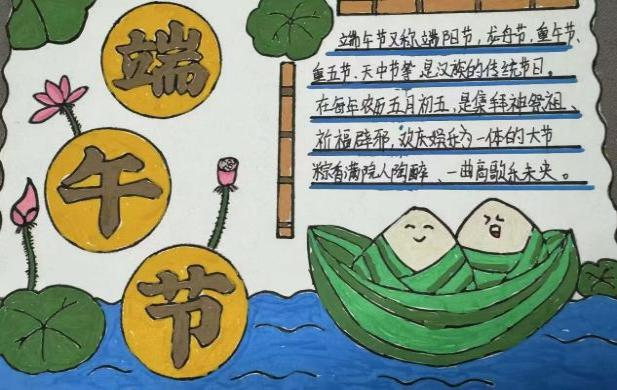 端
午
节
端午节又称端阳节，龙舟节，重午节、
重五节、天中节等，是汉族的传统节日。
在每年农历五月初五，是集拜神祭祖、
祈福辟邪，欢庆娱乐为一体的大节
粽香满院人陶醉、一曲高歌乐未央。